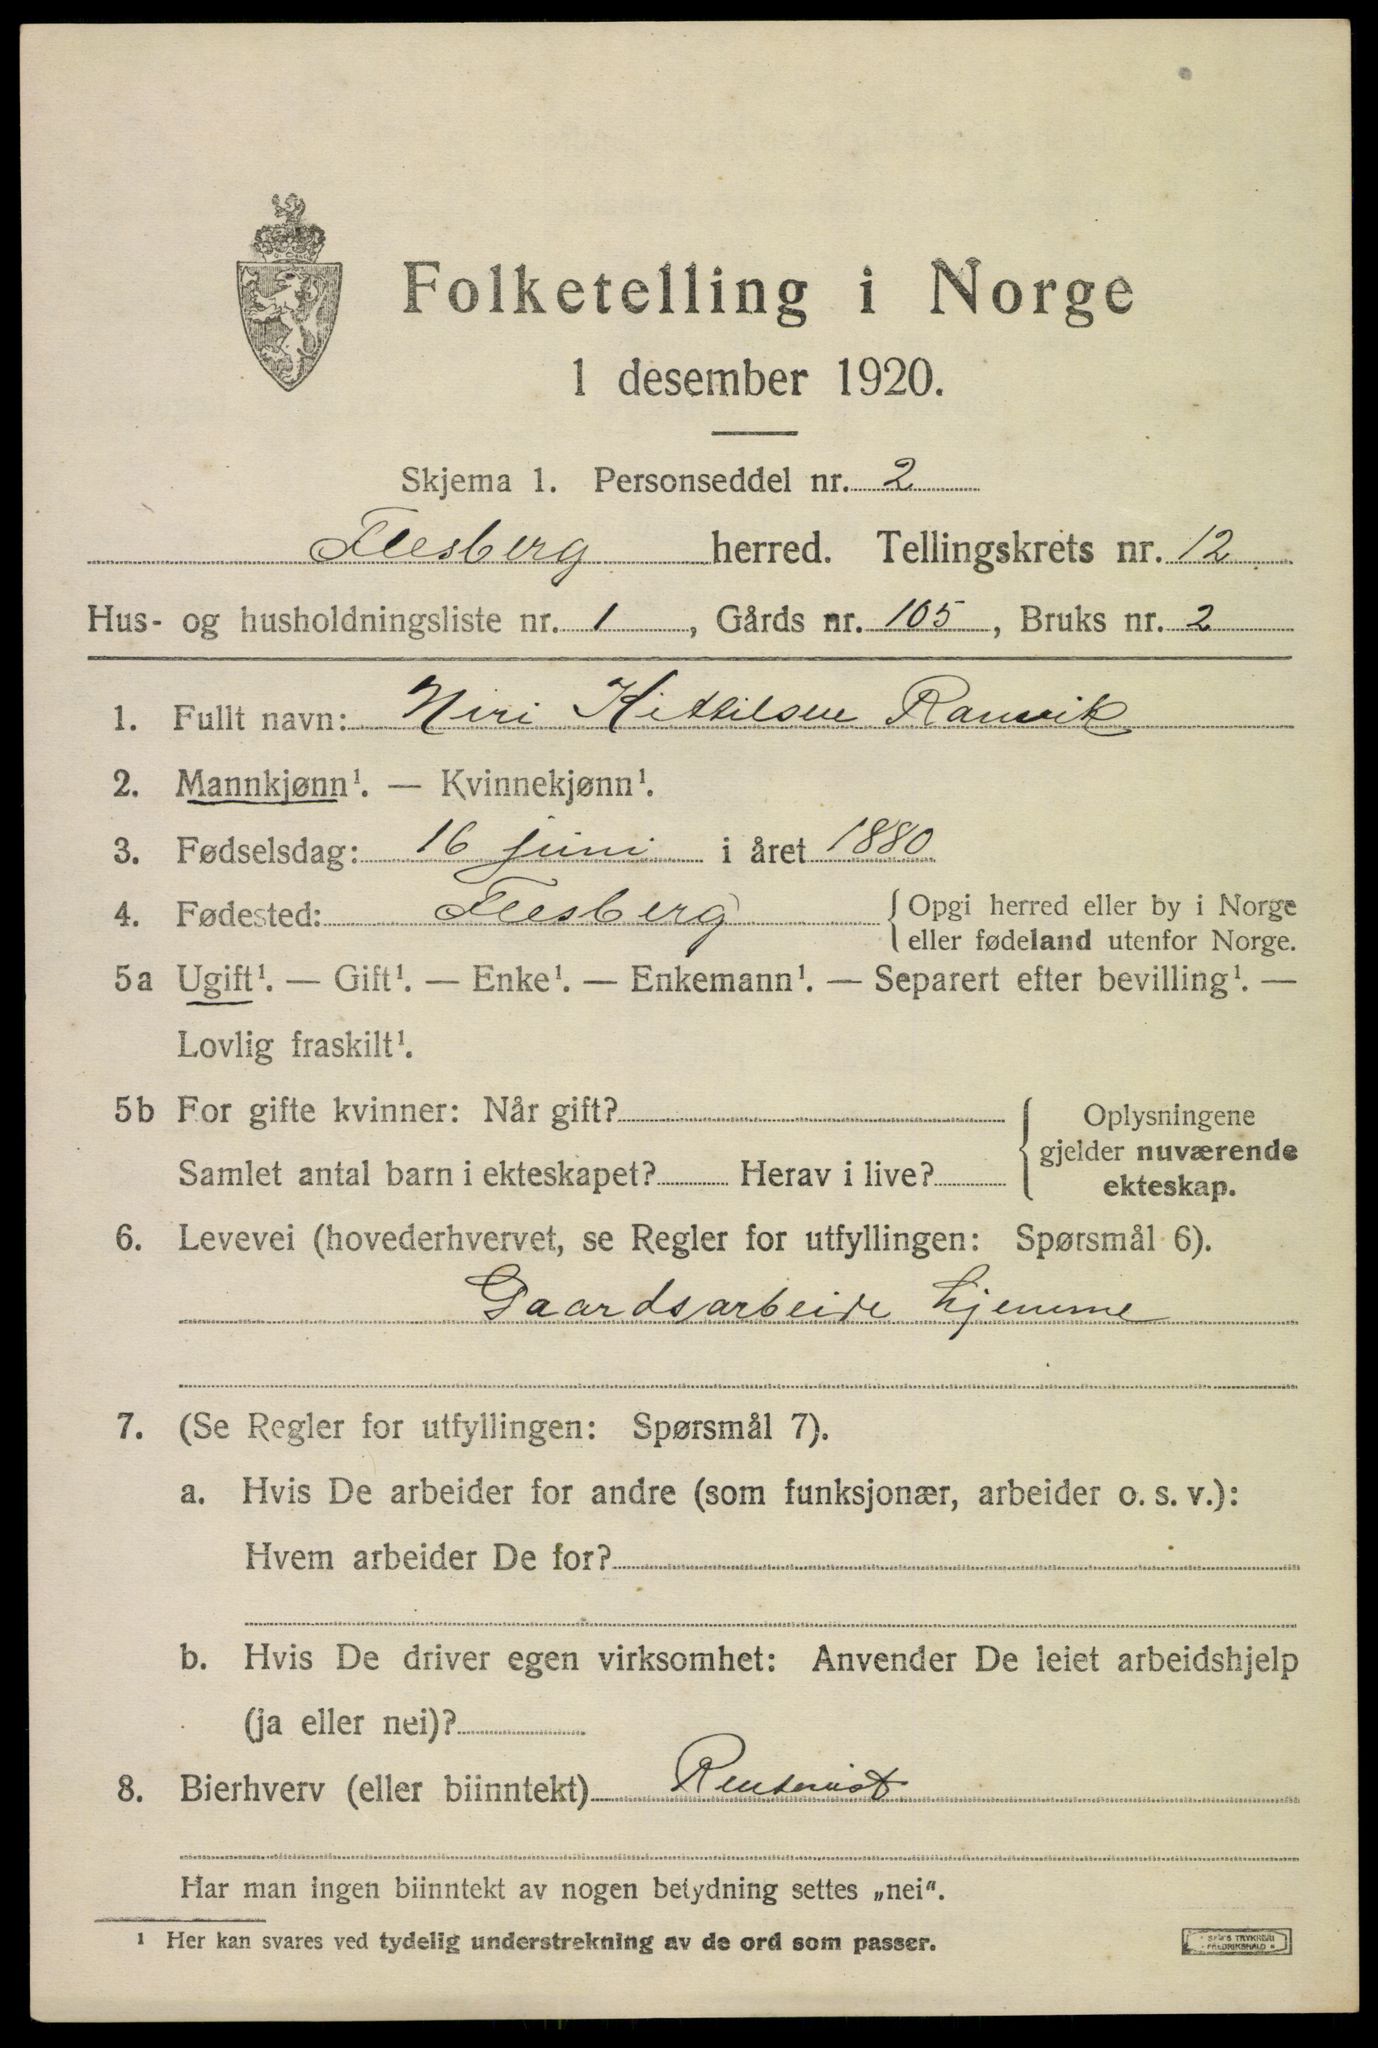 Folketelling i Norge
1 desember 1920.
Skjema 1. Personseddel nr. 2
Flesberg herred. Tellingskrets nr. 12
Hus- og husholdningsliste nr. 1, Gårds nr. 105, Bruks nr. 2
1. Fullt navn: Niri Kittilsen Ramvik
2. Mannkjønn¹. — Kvinnekjønn¹.
3. Fødselsdag: 16 juni i året 1880
4. Fødested: Flesberg { Opgi herred eller by i Norge
eller fødeland utenfor Norge.
5a Ugift¹. — Gift¹. — Enke¹. — Enkemann¹. — Separert efter bevilling¹. —
Lovlig fraskilt¹.
5b For gifte kvinner: Når gift?
Samlet antal barn i ekteskapet? Herav i live?
{ Oplysningene
gjelder nuværende
ekteskap.
6. Levevei (hovederhvervet, se Regler for utfyllingen: Spørsmål 6).
Gaardsarbeide hjemme
7. (Se Regler for utfyllingen: Spørsmål 7).
a. Hvis De arbeider for andre (som funksjonær, arbeider o. s. v.):
Hvem arbeider De for?
b. Hvis De driver egen virksomhet: Anvender De leiet arbeidshjelp
(ja eller nei)?
8. Bierhverv (eller biinntekt) Rentenist
Har man ingen biinntekt av nogen betydning settes „nei".
¹ Her kan svares ved tydelig understrekning av de ord som passer.
TRYKKERI
FREDRIKSHALD